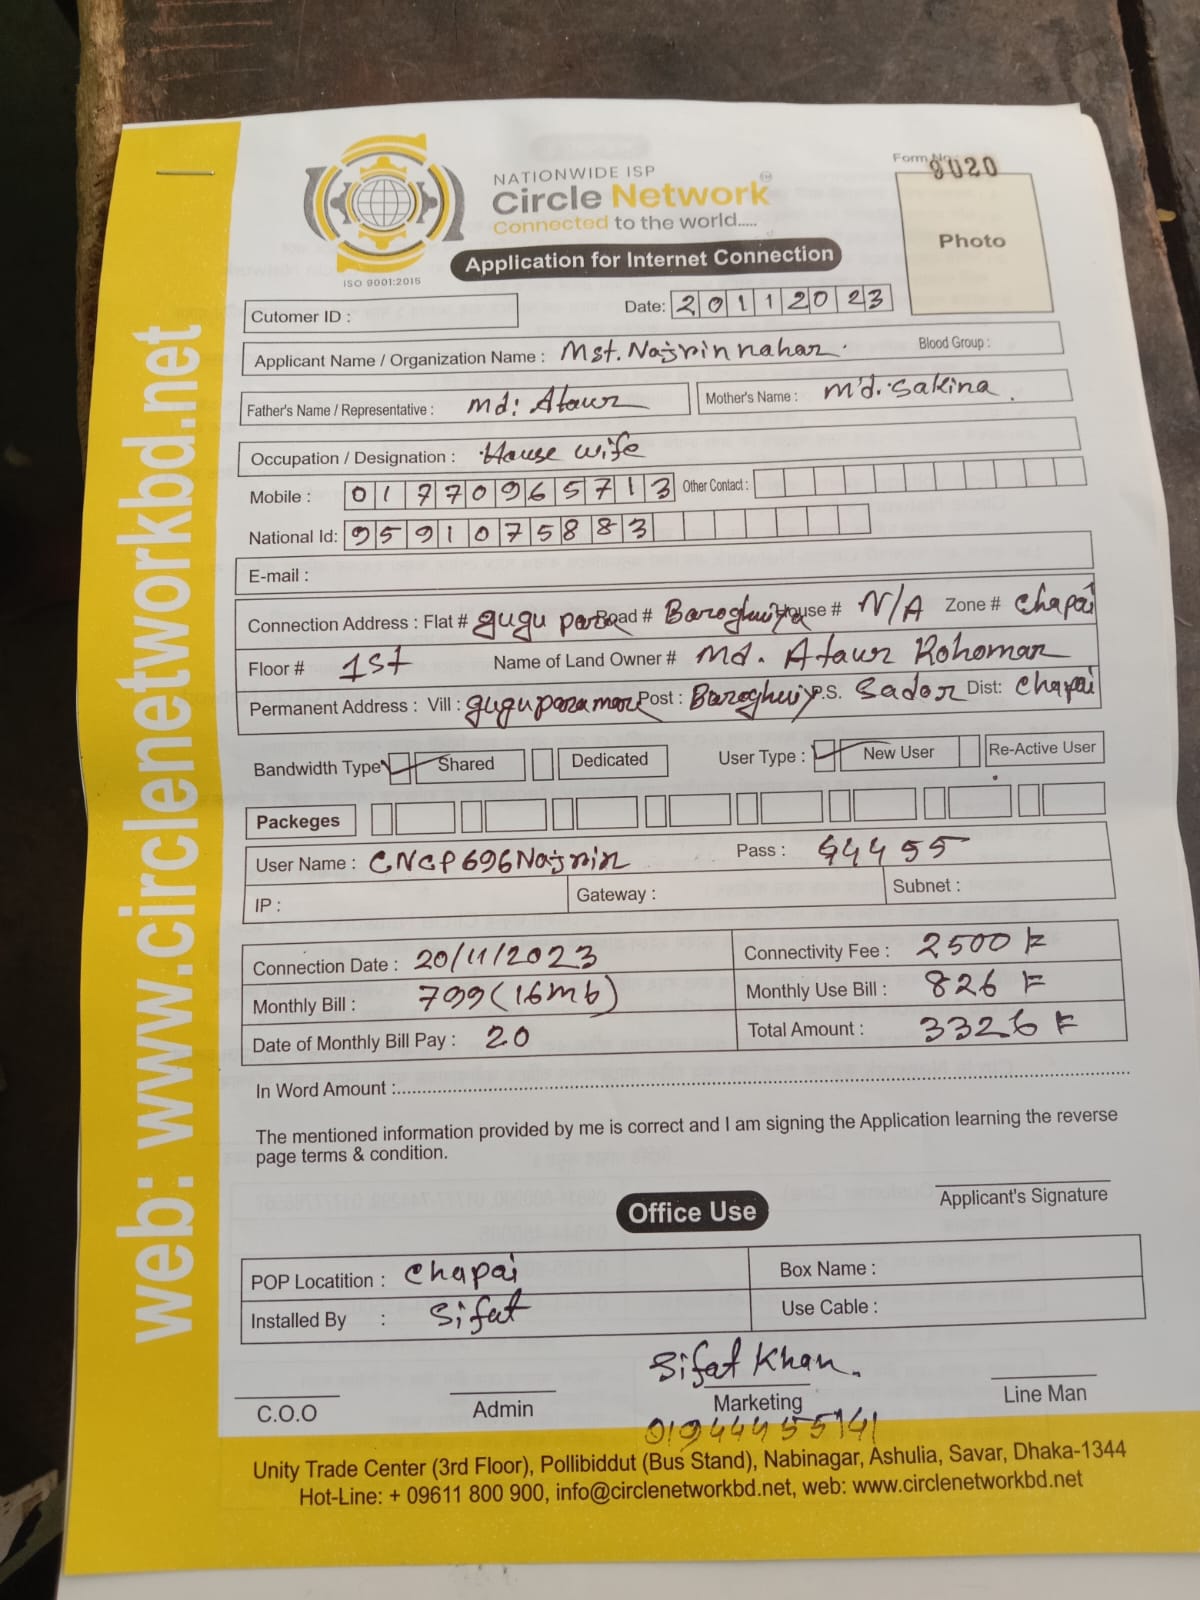 Form No. 9020
NATIONWIDE ISP
Circle Network TM
Connected to the world.....
ISO 9001:2015
Application for Internet Connection
Photo
Cutomer ID :
Date: 20112023
Applicant Name / Organization Name : Mst. Najrin nahar. Blood Group :
Father's Name / Representative : Md: Ataur Mother's Name : m'd. Sakina.
Occupation / Designation : House wife
Mobile : 01770965713 Other Contact :
National Id: 9591075883
E-mail :
Connection Address : Flat # gugu para Road # Baroghuriya House # N/A Zone # Chapai
Floor # 1st Name of Land Owner # Md. Ataur Rohoman
Permanent Address : Vill : Post : P.S. Sador Dist: Chapai
Bandwidth Type Shared Dedicated User Type : New User Re-Active User
Packeges
User Name : CNCP696Najnin Pass : 44455
IP : Gateway : Subnet :
Connection Date : 20/11/2023 Connectivity Fee : 2500
Monthly Bill : 799 (16mb) Monthly Use Bill : 826
Date of Monthly Bill Pay : 20 Total Amount : 3326
In Word Amount :
The mentioned information provided by me is correct and I am signing the Application learning the reverse
page terms & condition.
Applicant's Signature
Office Use
POP Locatition : Chapai Box Name :
Installed By : Sifat Use Cable :
Sifat Khan.
C.O.O Admin Marketing Line Man
01944455141
Unity Trade Center (3rd Floor), Pollibiddut (Bus Stand), Nabinagar, Ashulia, Savar, Dhaka-1344
Hot-Line: + 09611 800 900, info@circlenetworkbd.net, web: www.circlenetworkbd.net
web: www.circlenetworkbd.net